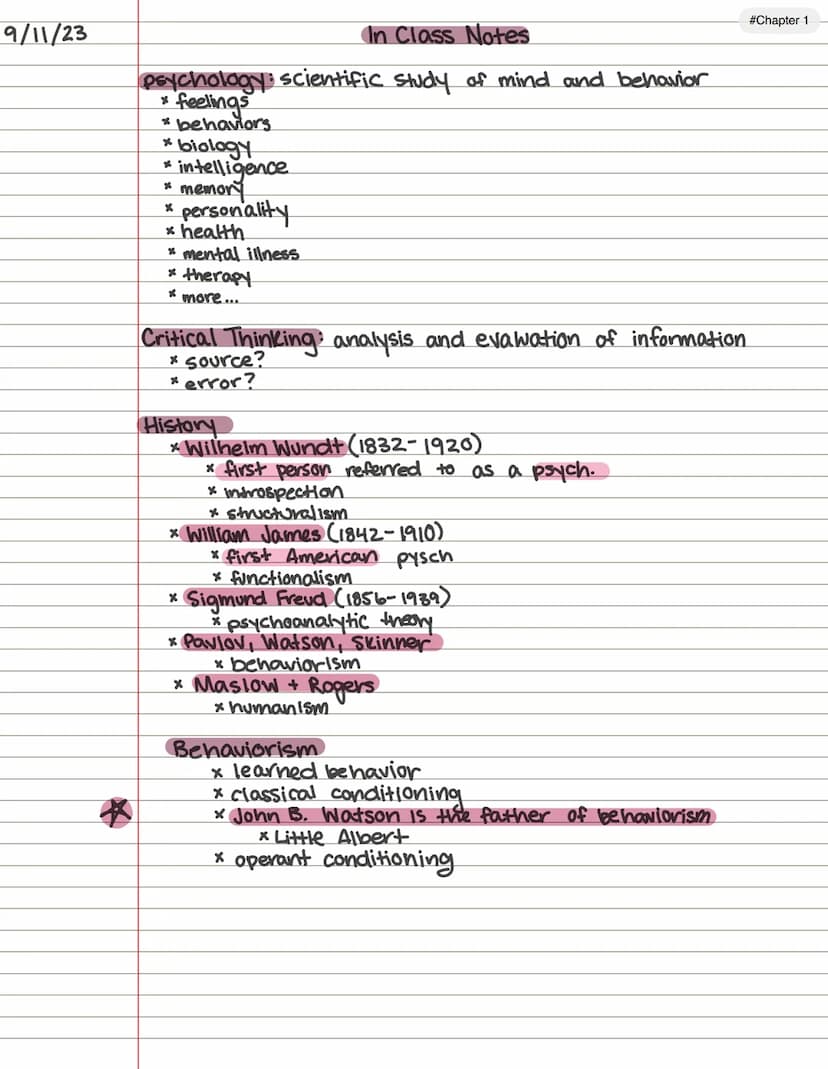 #Chapter 1
9/11/23 In Class Notes
psychology: scientific study of mind and behavior
* feelings
* behaviors
* biology
* intelligence
* memory
* personality
* health
* mental illness
* therapy
* more...
Critical Thinking: analysis and evaluation of information
* source?
* error?
History
* Wilhelm Wundt (1832-1920)
* first person referred to as a psych.
* introspection
* structuralism
* William James (1842-1910)
* first American pysch
* functionalism
* Sigmund Freud (1856-1939)
* psychoanalytic theory
* Pavlov, Watson, Skinner
* behaviorism
* Maslow + Rogers
* humanism
Behaviorism
* learned behavior
* classical conditioning
* John B. Watson is the father of behaviorism
* Little Albert
* operant conditioning